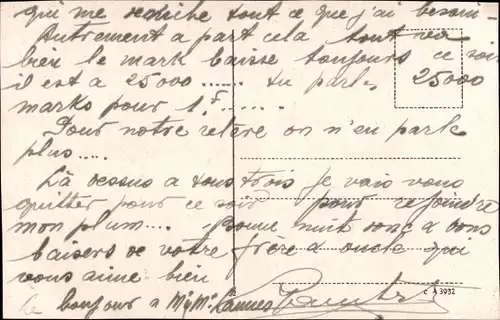 qui me rechche tout ce que j'ai besoin.
Autrement a part cela tout va
bien le mark baisse toujours ce soir
il est a 25000 ...... tu parl. 25000
marks pour 1.F......
Pour notre relève on n'en parle
plus....
Là dessus a tous trois je vais vous
quitter pour ce soir pour rejoindre
mon plum.... Bonne nuit donc a vous
baisers de votre frère & oncle qui
vous aime bien
le bonjour a Mr Me Lannes
A 3932